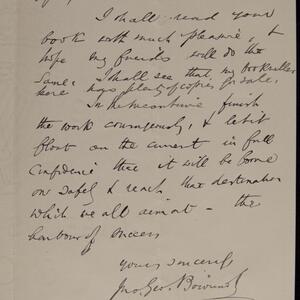 I shall read your
book with much pleasure, &
hope my friends will do the
same. I shall see that my bookseller
here keeps plenty of copies for sale.
In the meantime finish
the work courageously, & let it
float on the current in full
confidence that it will be borne
on safely & reach that destination
which we all aim at – the
harbour of success
Yours sincerely
Jno. Geo.